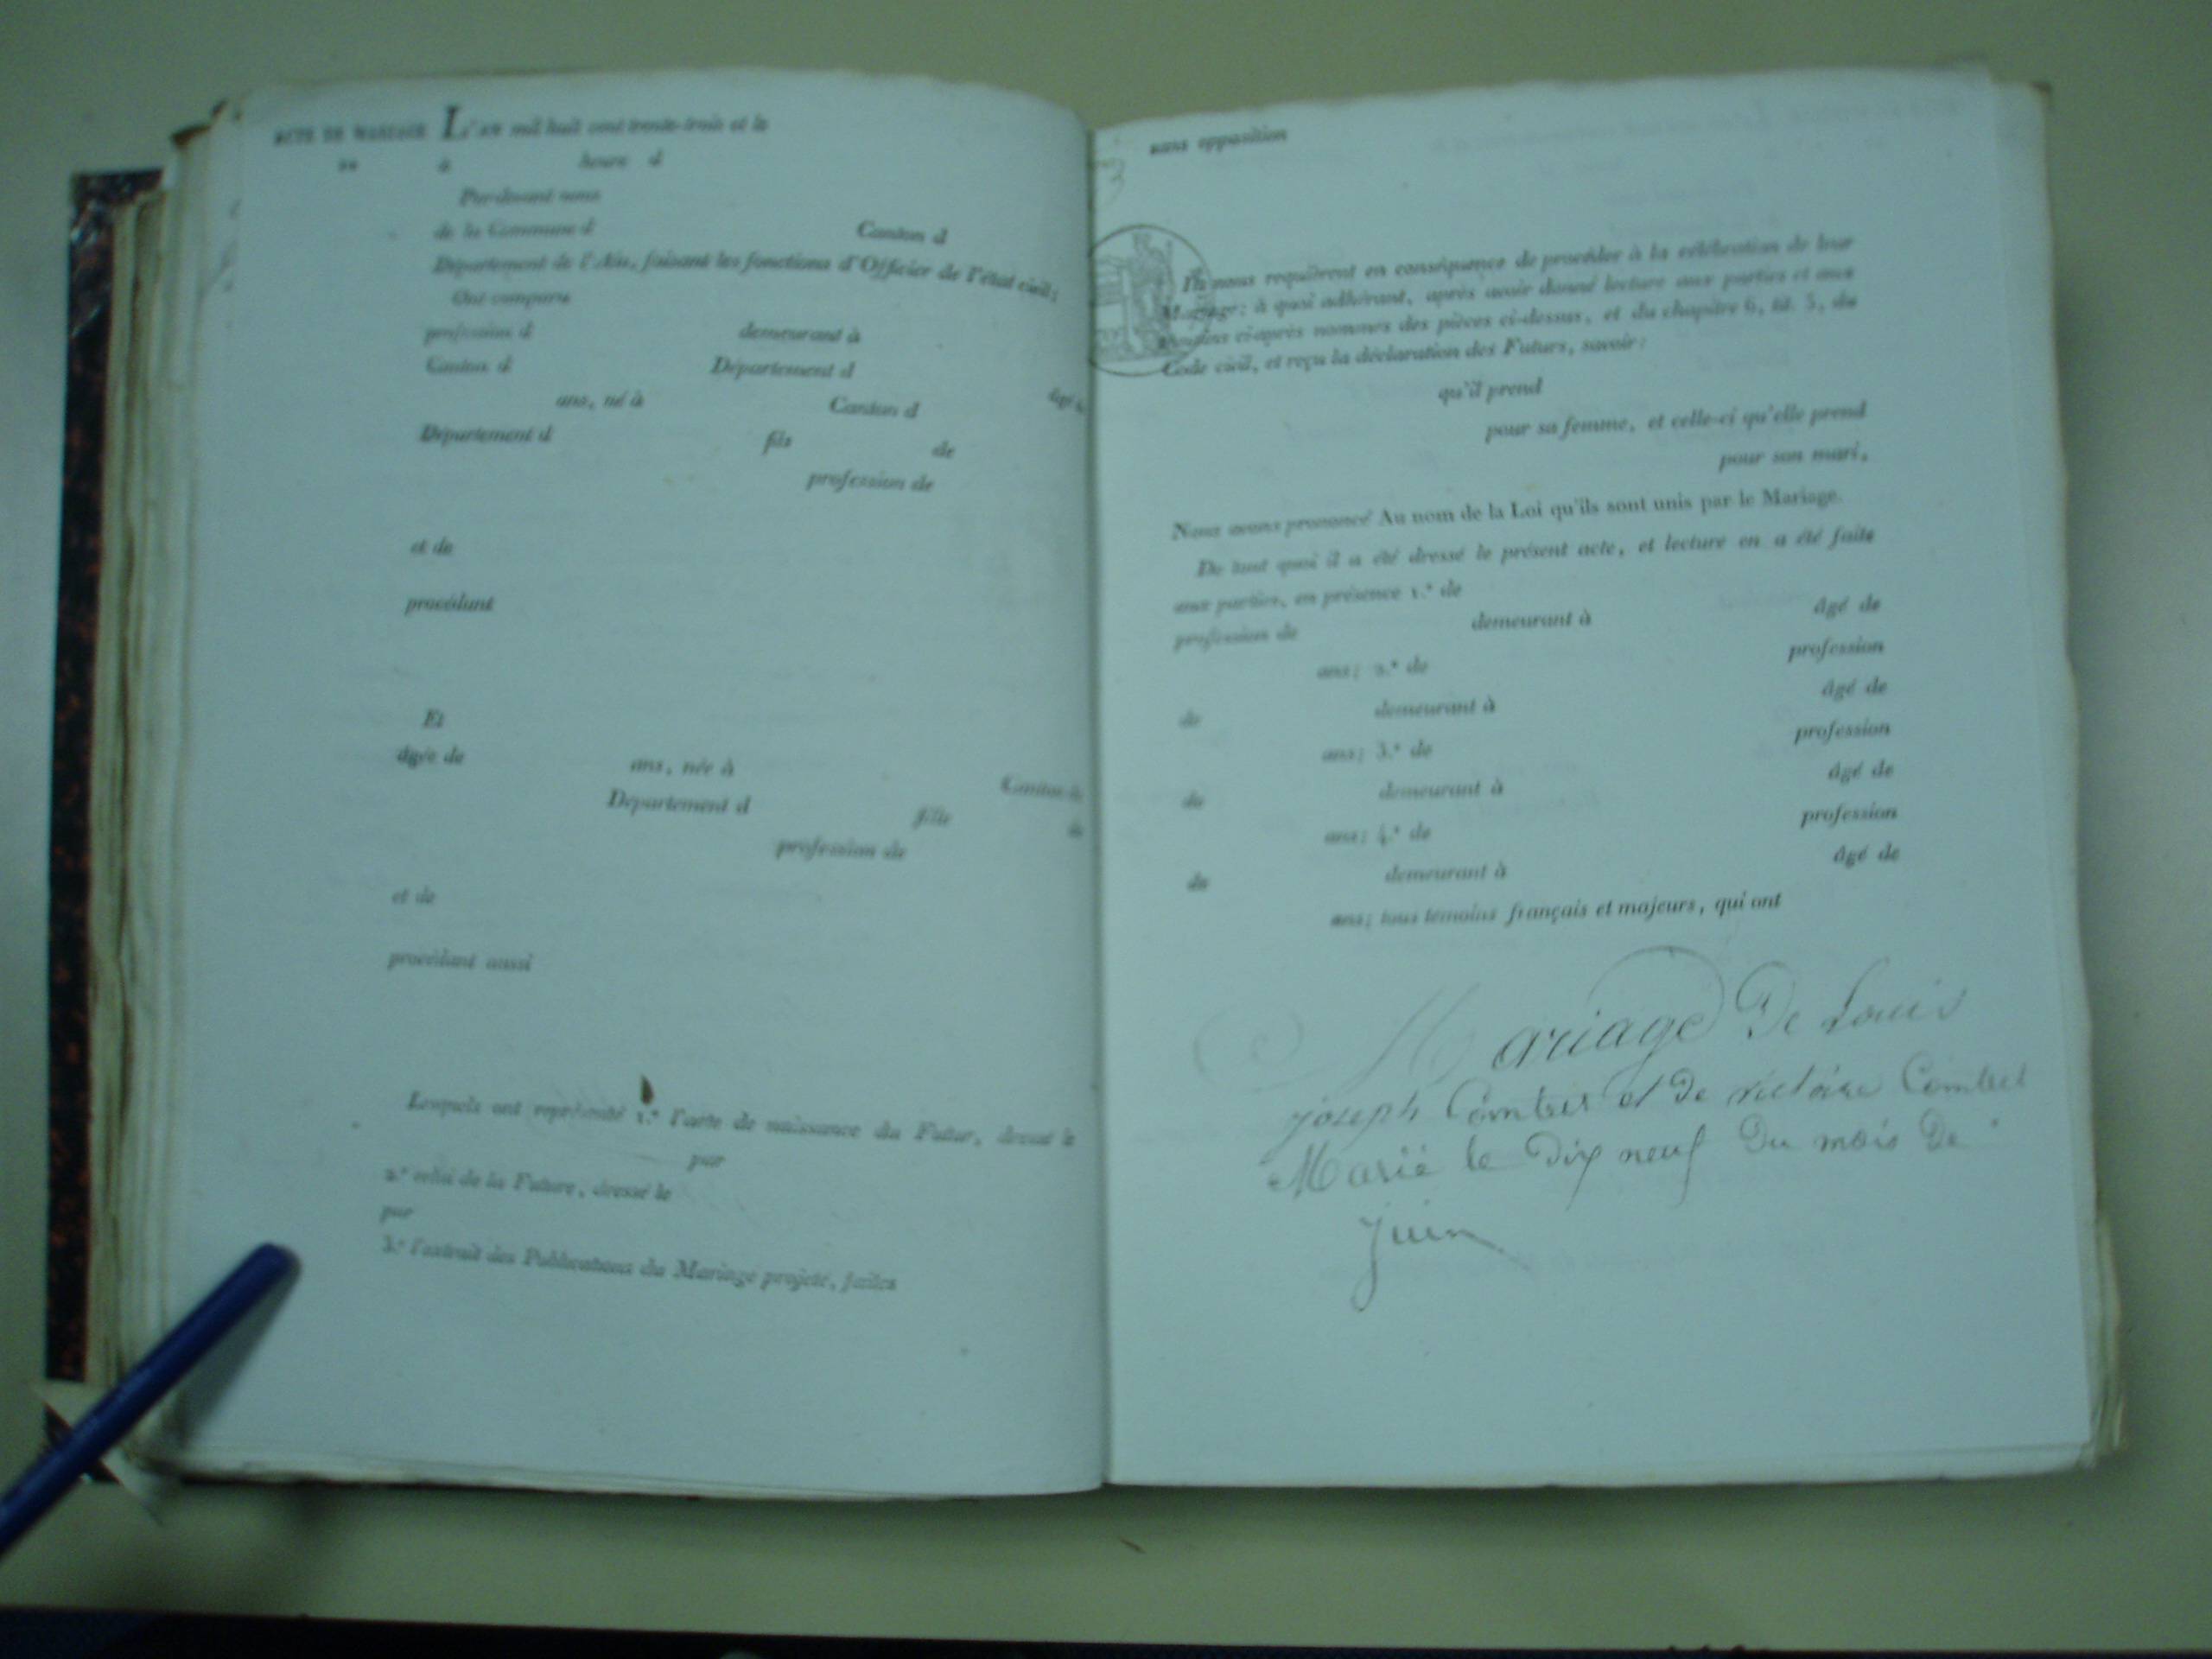 ACTE DE MARIAGE L'AN mil huit cent trente-trois et le
du à heure d
Pardevant nous
de la Commune d Canton d
Département de l'Ain, faisant les fonctions d'Officier de l'état civil;
Ont comparu
profession d demeurant à
Canton d Département d
âgé d
ans, né à Canton d
Département d fils de
profession de
et de
procédant
Et
âgée de ans, née à Canton d
Département d fille de
profession de
et de
procédant aussi
Lesquels ont représenté 1.° l'acte de naissance du Futur, dressé le
par
2.° celui de la Future, dressé le
par
3.° l'extrait des Publications du Mariage projeté, faites
sans opposition
Ils nous requièrent en conséquence de procéder à la célébration de leur
Mariage; à quoi adhérant, après avoir donné lecture aux parties et aux
témoins ci-après nommés des pièces ci-dessus, et du chapitre 6, tit. 5, du
Code civil, et reçu la déclaration des Futurs, savoir:
qu'il prend
pour sa femme, et celle-ci qu'elle prend
pour son mari,
Nous avons prononcé Au nom de la Loi qu'ils sont unis par le Mariage.
De tout quoi il a été dressé le présent acte, et lecture en a été faite
aux parties, en présence 1.° de
profession de demeurant à âgé de
ans; 2.° de profession
de demeurant à âgé de
ans; 3.° de profession
de demeurant à âgé de
ans; 4.° de profession
de demeurant à âgé de
ans; tous témoins français et majeurs, qui ont
Mariage De Louis
joseph Combet et De victoire Combet
Marié le Dix neuf Du mois De
juin